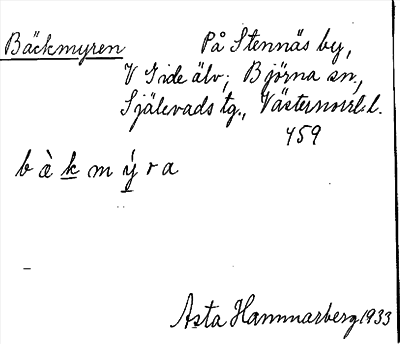 Bäckmyren På Stennäs by,
V Gide älv; Björna sn.,
Själevads tg., Västernorrl. l.
459
b à k m ý r a
Asta Hammarberg 1933